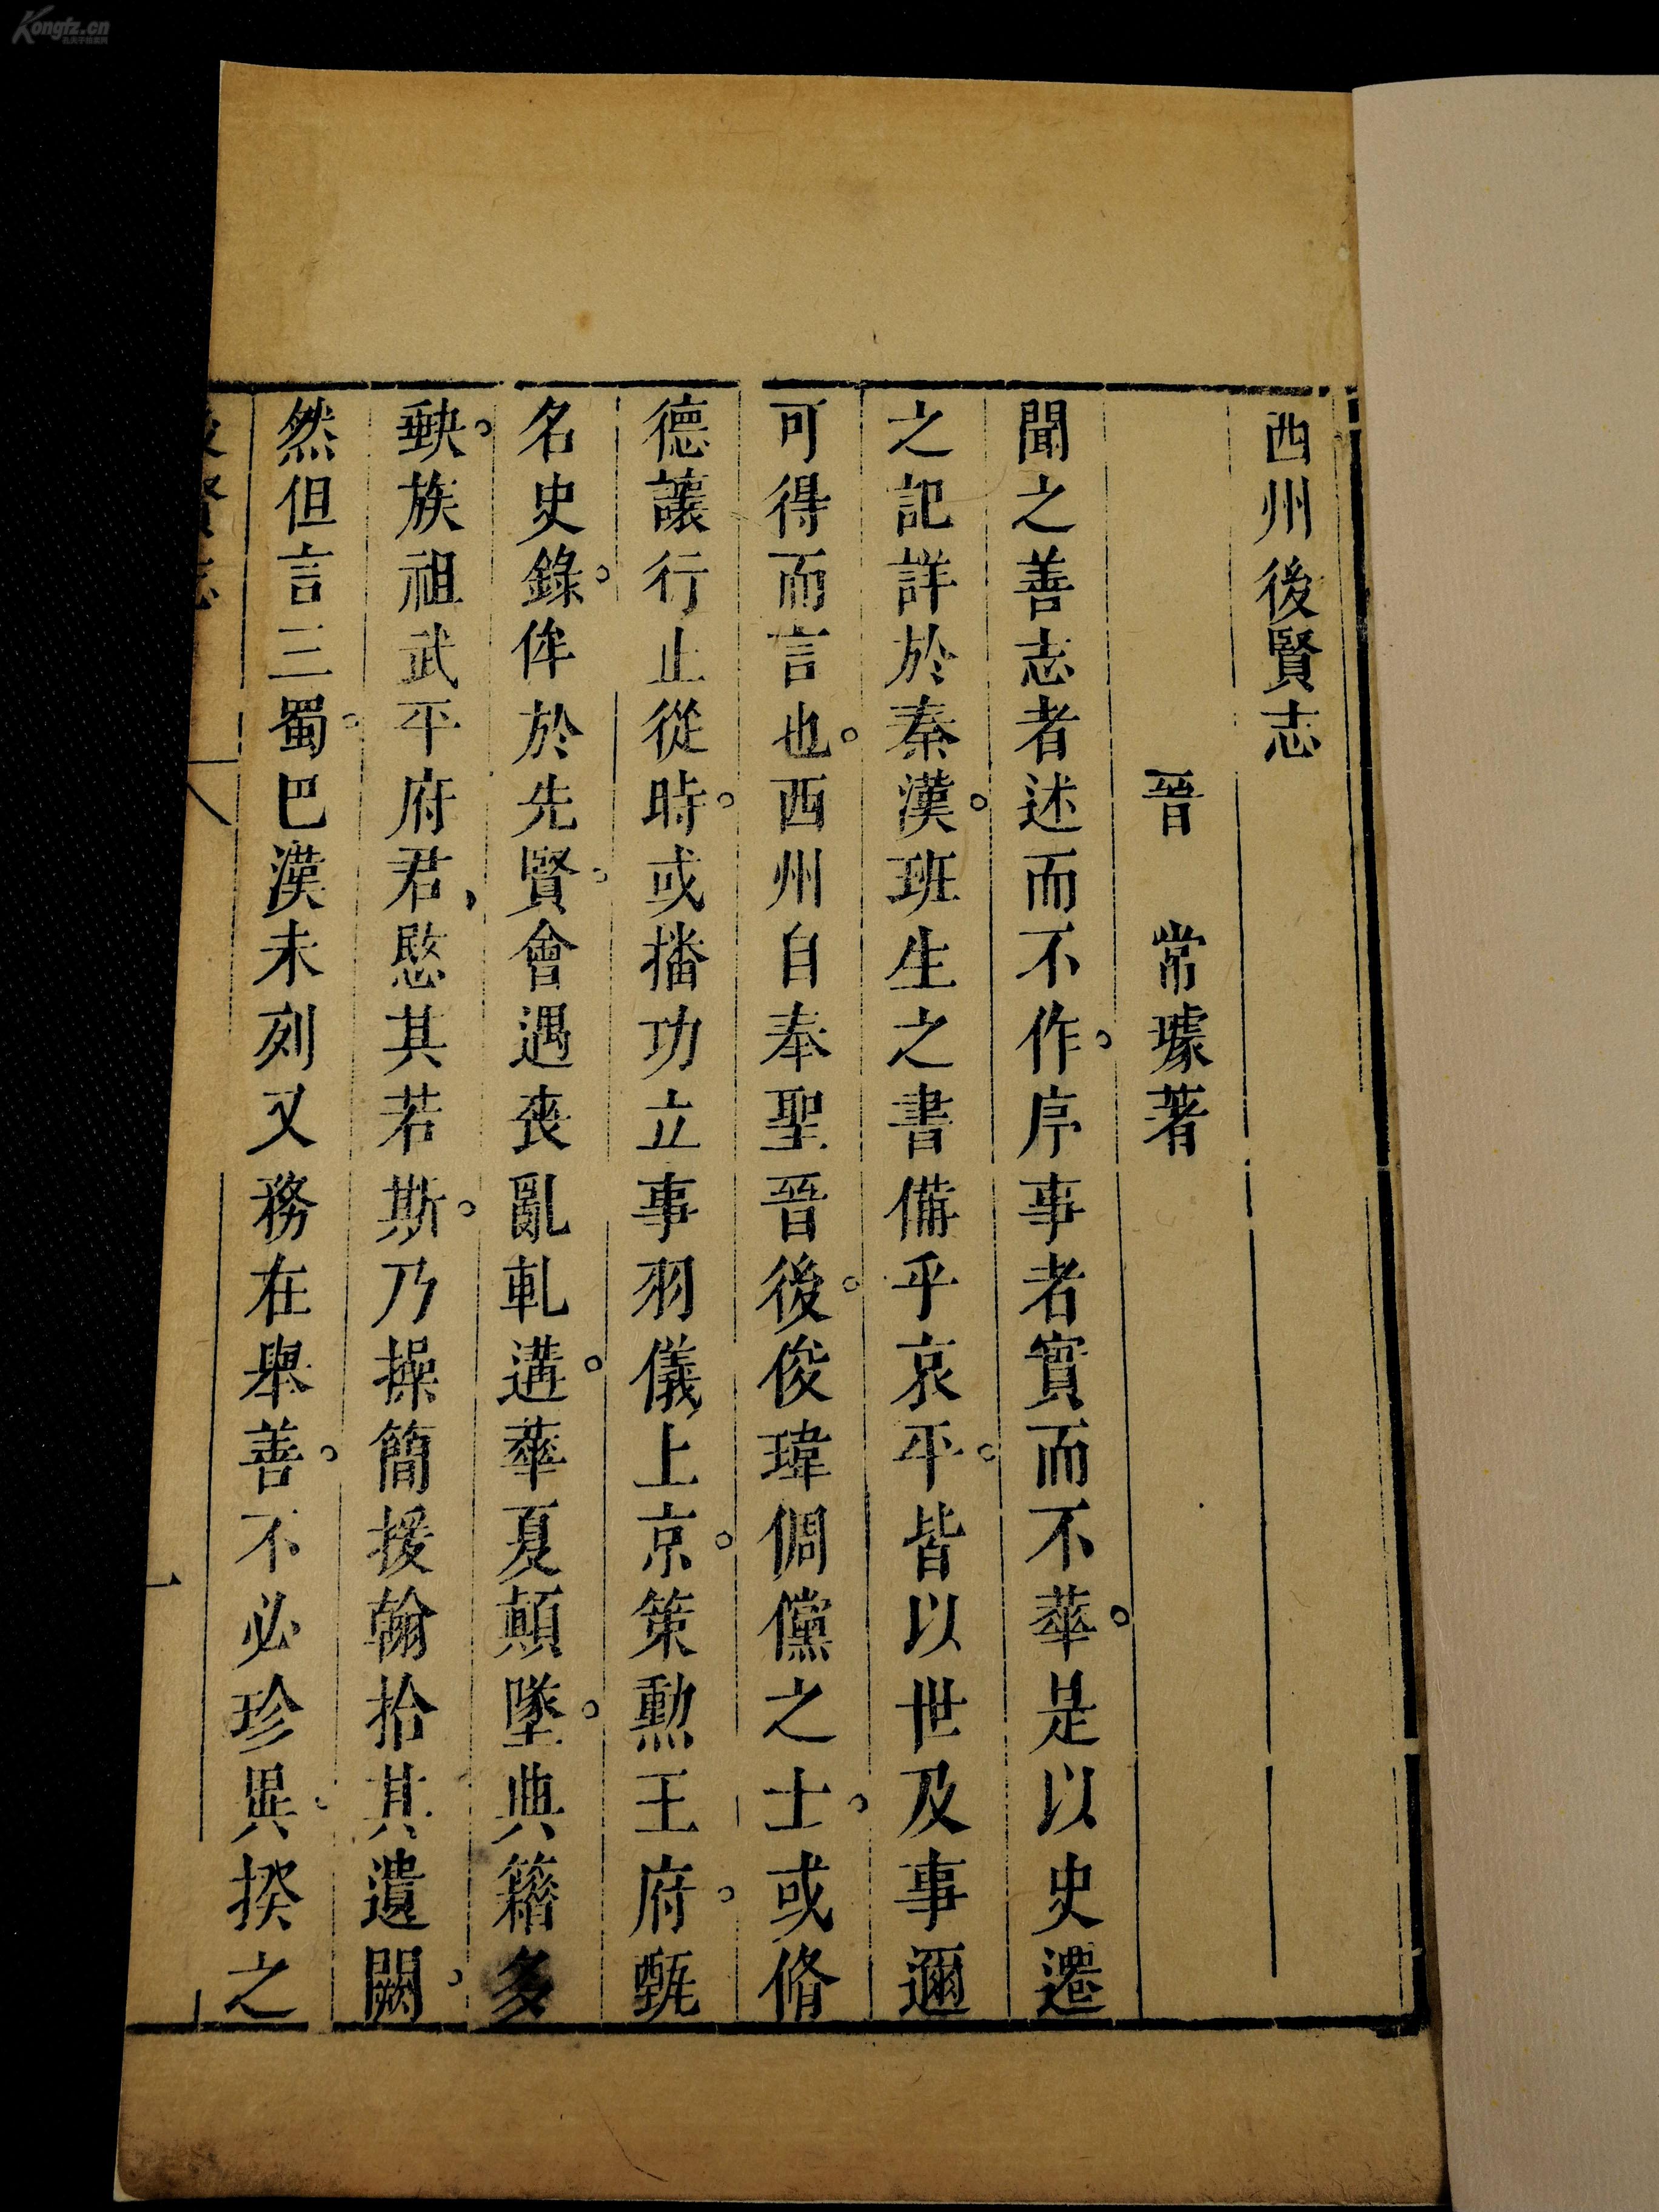 西州後賢志
晉 常璩著
聞之善志者述而不作。序事者實而不華。是以史遷
之記詳於秦漢。班生之書備乎哀平。皆以世及事邇
可得而言也。西州自奉聖晉後。俊瑋倜儻之士。或脩
德讓行止從時。或播功立事羽儀上京。策勳王府。甄
名史錄。侔於先賢。會遇喪亂軋遘。華夏顛墜。典籍多
缺。族祖武平府君、愍其若斯。乃操簡援翰拾其遺闕。
然但言三蜀。巴漢未列又務在舉善。不必珍異。揆之
後賢志
一
Kongfz.cn
孔夫子旧书网